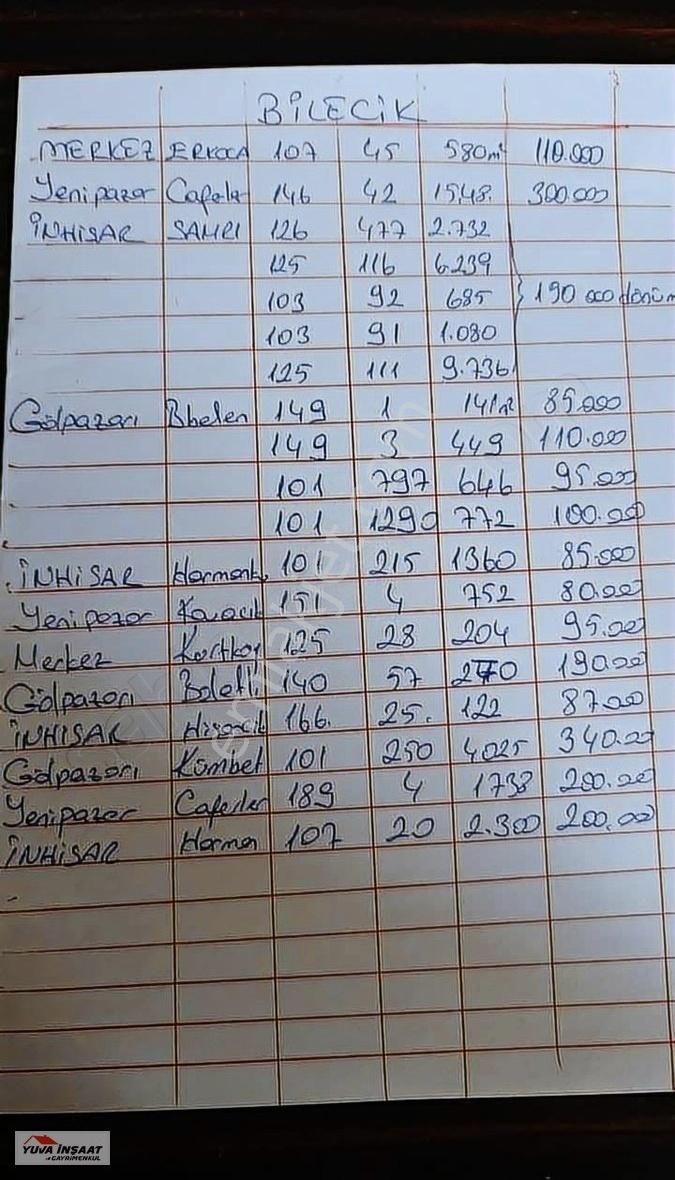 BİLECİK
MERKEZ ERKOCA 107 45 580m² 110.000
Yenipazar Cafeler 146 42 1548. 300.000
İNHİSAR SAMRI 126 477 2.732
125 116 6.239
103 92 685 190 000 dönüm
103 91 1.080
125 111 9.736
Gölpazarı Bbelen 149 1 141m² 85.000
149 3 449 110.000
101 797 646 95.000
101 1290 772 100.000
İNHİSAR 101 215 1360 85.000
Yenipazar Kavacık 151 4 752 80.000
Merkez Kurtköy 125 28 204 95.000
Gölpazarı 140 57 270 190.00
İNHİSAR Hisarcık 166. 25. 122 87.00
Gölpazarı Kümbet 101 250 4025 340.00
Yenipazar Caferler 189 4 1738 200.00
İNHİSAR Harman 107 20 2.300 200.00
YUVA İNŞAAT
GAYRİMENKUL